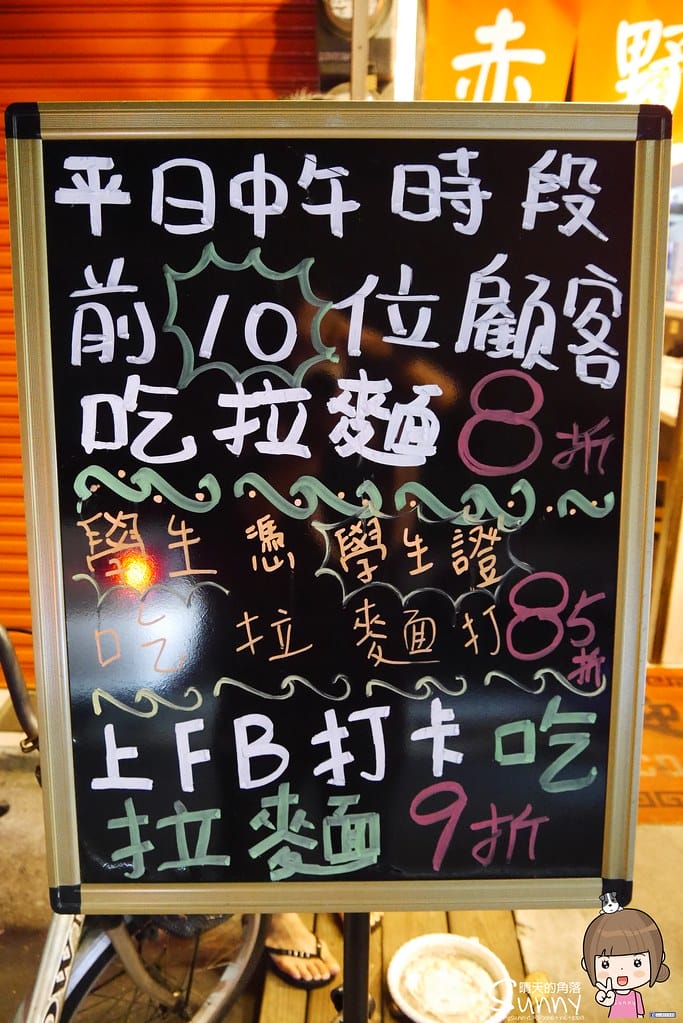 赤野
平日中午時段
前10位顧客
吃拉麵8折
學生憑學生證
吃拉麵打85折
上FB打卡吃
拉麵9折
晴天的角落
Sunny